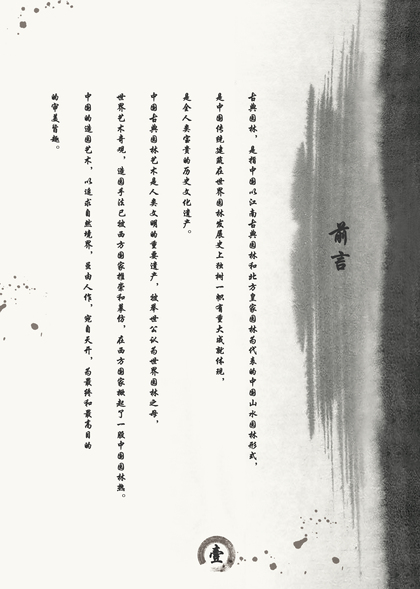 前言
古典园林，是指中国以江南古典园林和北方皇家园林为代表的中国山水园林形式，
是中国传统建筑在世界园林发展史上独树一帜有重大成就体现，
是全人类宝贵的历史文化遗产。
中国古典园林艺术是人类文明的重要遗产，被举世公认为世界园林之母，
世界艺术奇观，造园手法已被西方国家推崇和摹仿，在西方国家掀起了一股中国园林热。
中国的造园艺术，以追求自然境界，虽由人作，宛自天开，为最终和最高目的
的审美旨趣。
壹